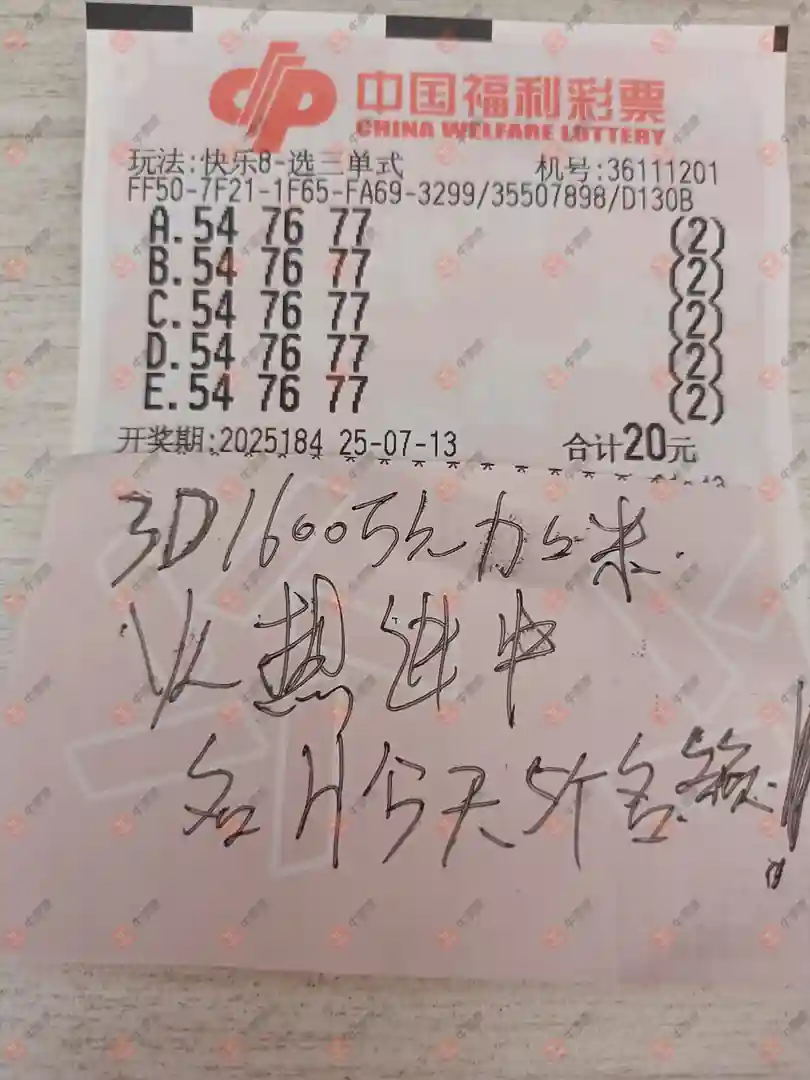 中国福利彩票
CHINA WELFARE LOTTERY
玩法:快乐8-选三单式 机号:36111201
FF50-7F21-1F65-FA69-3299/35507898/D130B
A.54 76 77 (2)
B.54 76 77 (2)
C.54 76 77 (2)
D.54 76 77 (2)
E.54 76 77 (2)
开奖期:2025184 25-07-13 合计20元
3D1600万元加上米.
火热继中
名片今天5个名额!